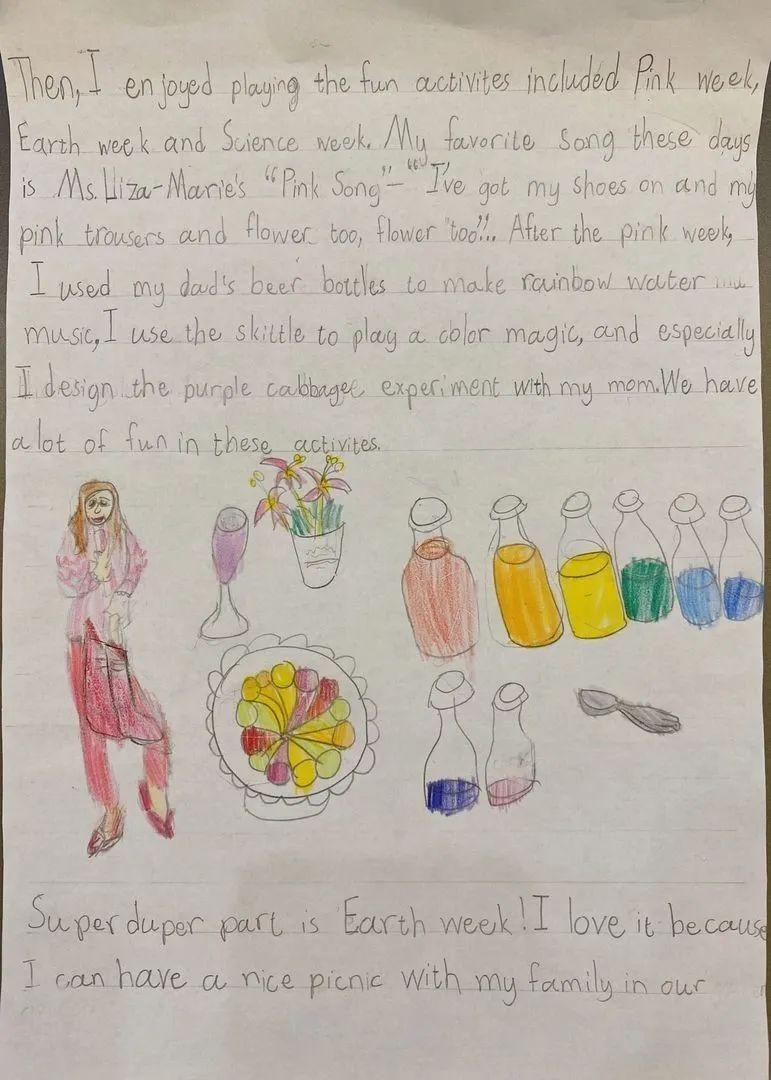 Then, I enjoyed playing the fun activites included Pink week,
Earth week and Science week. My favorite song these days
is Ms. Liza-Marie's "Pink Song" - "I've got my shoes on and my
pink trousers and flower too, flower too".. After the pink week,
I used my dad's beer bottles to make rainbow water
music, I use the skittle to play a color magic, and especially
I design the purple cabbagee experiment with my mom. We have
a lot of fun in these activites.
Super duper part is Earth week! I love it because
I can have a nice picnic with my family in our